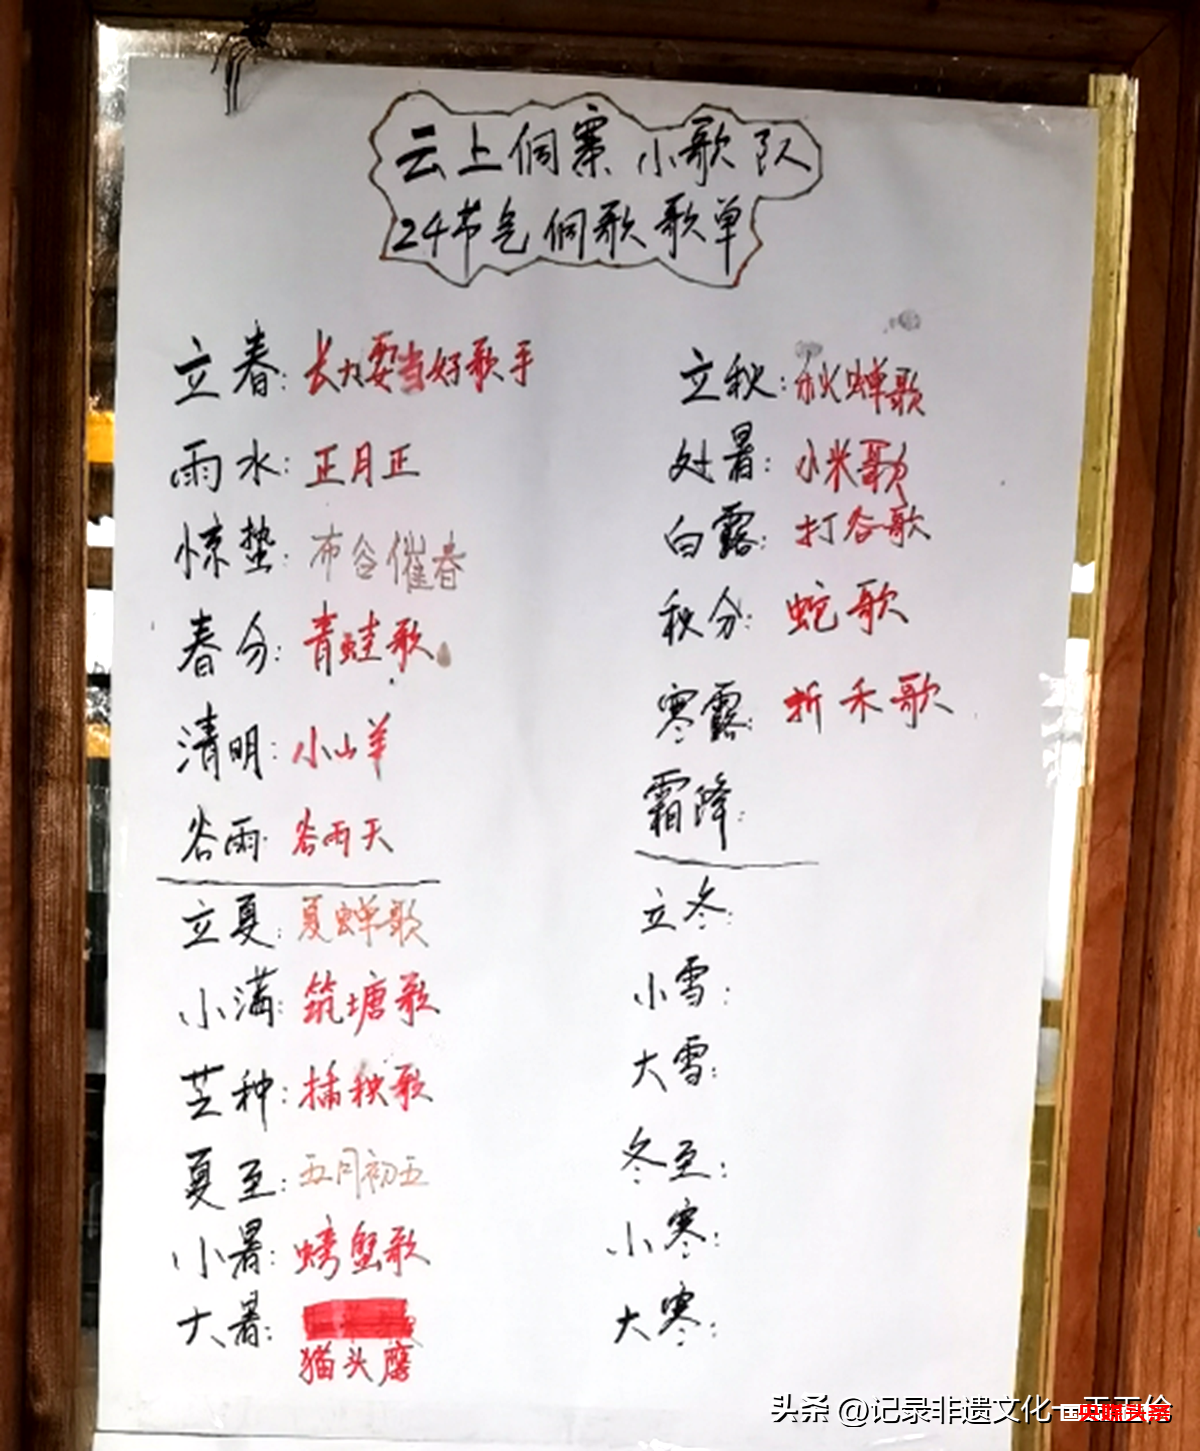 云上侗寨小歌队
24节气侗歌歌单
立春：长大要当好歌手
雨水：正月正
惊蛰：布谷催春
春分：青蛙歌
清明：小山羊
谷雨：谷雨天
立夏：夏蝉歌
小满：筑塘歌
芒种：插秧歌
夏至：五月初五
小暑：螃蟹歌
大暑：
猫头鹰
立秋：秋蝉歌
处暑：小米歌
白露：打谷歌
秋分：蛇歌
寒露：折禾歌
霜降：
立冬：
小雪：
大雪：
冬至：
小寒：
大寒：
头条 @记录非遗文化一